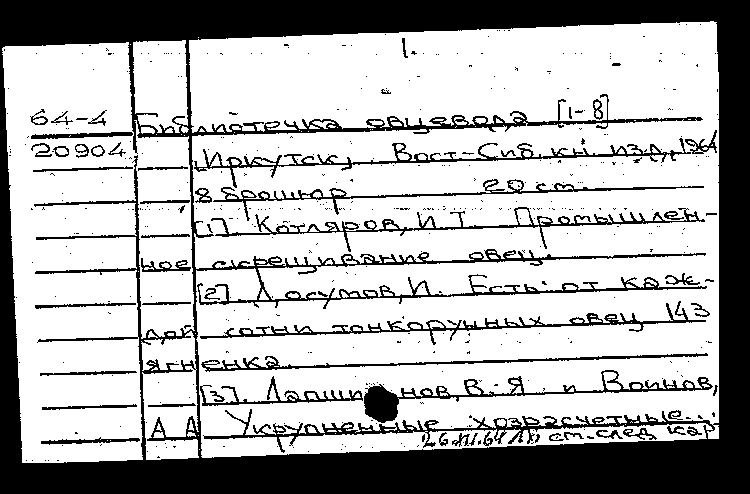 1.
64-4 Библиотечка овцевода [1-8]
20904 Иркутск, Вост-Сиб. кн. изд., 1964
8 брошюр 20 cm.
[1] Котляров, И.Т. Промышлен-
ное скрещивание овец.
[2]. Досумов, И. Есть: от каж-
дой сотни тонкорунных овец 143
ягненка.
[3]. Лапшинов, В.Я и Воинов,
А А Укрупненные хозрасчетные...
26.XII.64 см. след кар